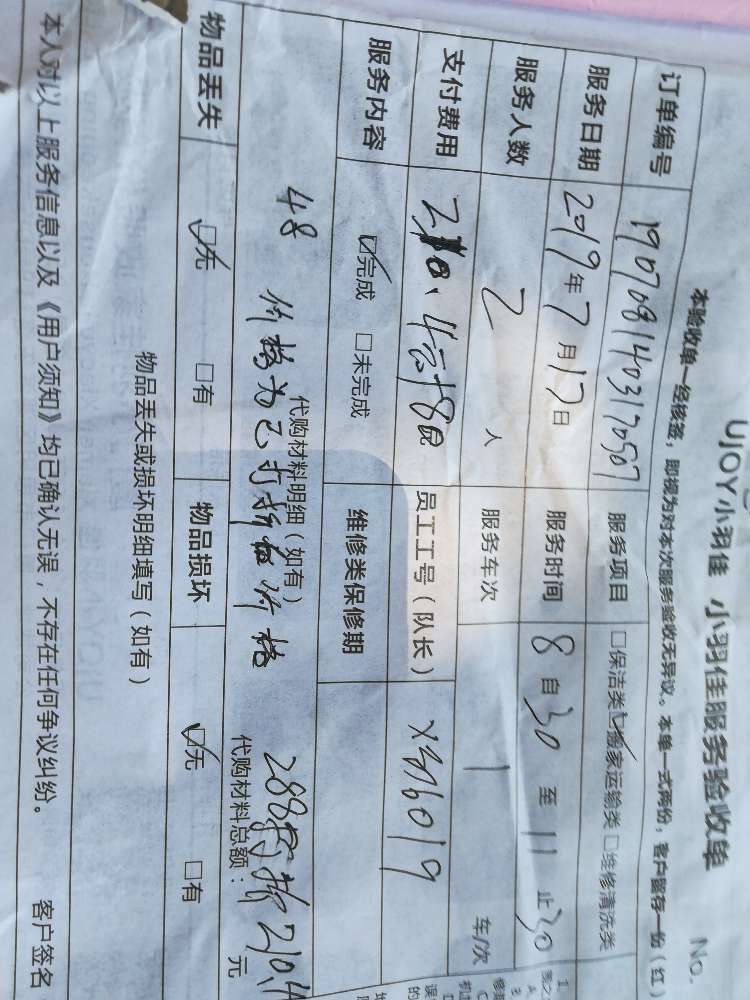 UJOY小羽佳 小羽佳服务验收单
No.
本验收单一经核签，即视为对本次服务验收无异议。本单一式两份，客户留存一份（红）
订单编号 1907081403170507 服务项目 □保洁类 ☑搬家运输类 □维修清洗类
服务日期 2019年7月17日 服务时间 8自30至11止30
服务人数 2人 服务车次 1 车/次
支付费用 员工工号（队长） XM6019
服务内容 ☑完成 □未完成 维修类保修期
代购材料明细（如有）
48 价格为已打折 价格
代购材料总额： 元
288 折 210.4
物品丢失 ☑无 □有 物品损坏 ☑无 □有
物品丢失或损坏明细填写（如有）
本人对以上服务信息以及《用户须知》均已确认无误，不存在任何争议纠纷。 客户签名